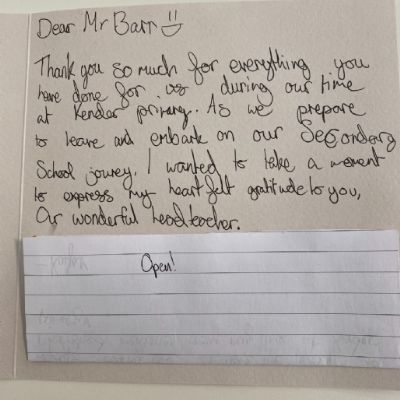 Dear Mr Barr
Thank you so much for everything you
have done for us during our time
at Kender primary. As we prepare
to leave and embark on our Secondary
School jouney. I wanted to take a moment
to express my heart felt gratitude to you,
Our wonderful headteacher.
Open!